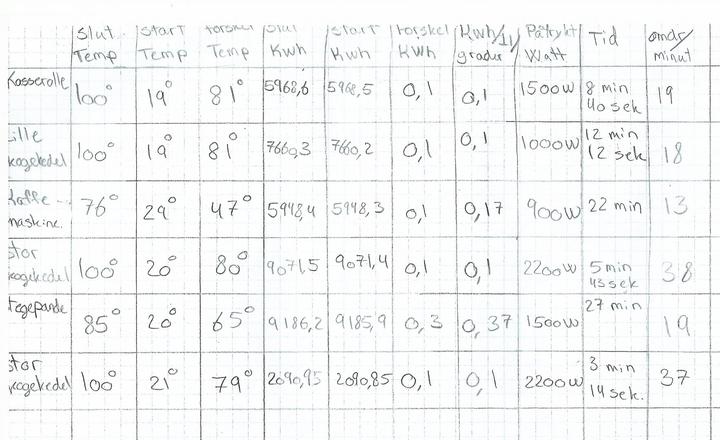 Slut start forskel Slut Start forskel Kwh/1l Påtrykt Tid omdr/
Temp Temp Temp Kwh Kwh KWh grader Watt minut
Kasserolle 100° 19° 81° 5968,6 5968,5 0,1 0,1 1500W 8 min 19
40 sek
ille 100° 19° 81° 7660,3 7660,2 0,1 0,1 1000W 12 min 18
kogekedel 12 sek
Kaffe- 76° 29° 47° 5948,4 5948,3 0,1 0,17 900W 22 min 13
maskine.
stor 100° 20° 80° 9071,5 9071,4 0,1 0,1 2200W 5 min 38
kogekedel 43 sek
tegepande 85° 20° 65° 9186,2 9185,9 0,3 0,37 1500W 27 min 19
stor 100° 21° 79° 2090,95 2090,85 0,1 0,1 2200W 3 min 37
kogekedel 14 sek.